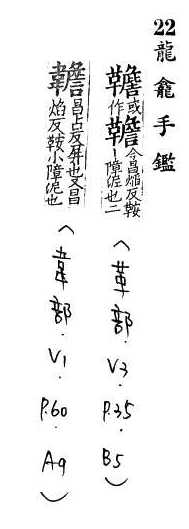 22 龍龕手鑑
韂或作韂今昌焰反鞍丨障泥也二
〈革部.V3.P.35.B5〉
韂昌占反屏也又昌焰反鞍小障泥也
〈韋部.V1.P.60.A9〉